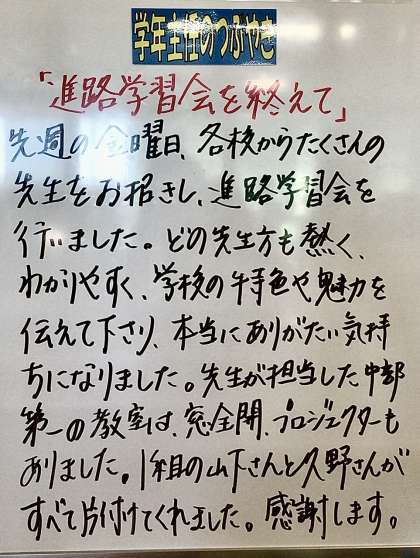 学年主任のつぶやき
「進路学習会を終えて」
先週の金曜日、各校からたくさんの
先生をお招きし、進路学習会を
行いました。どの先生方も熱く、
わかりやすく、学校の特色や魅力を
伝えて下さり、本当にありがたい気持
ちになりました。先生が担当した中部
第一の教室は、窓全開、プロジェクターも
ありました。1組の山下さんと久野さんが
すべて片付けてくれました。感謝します。